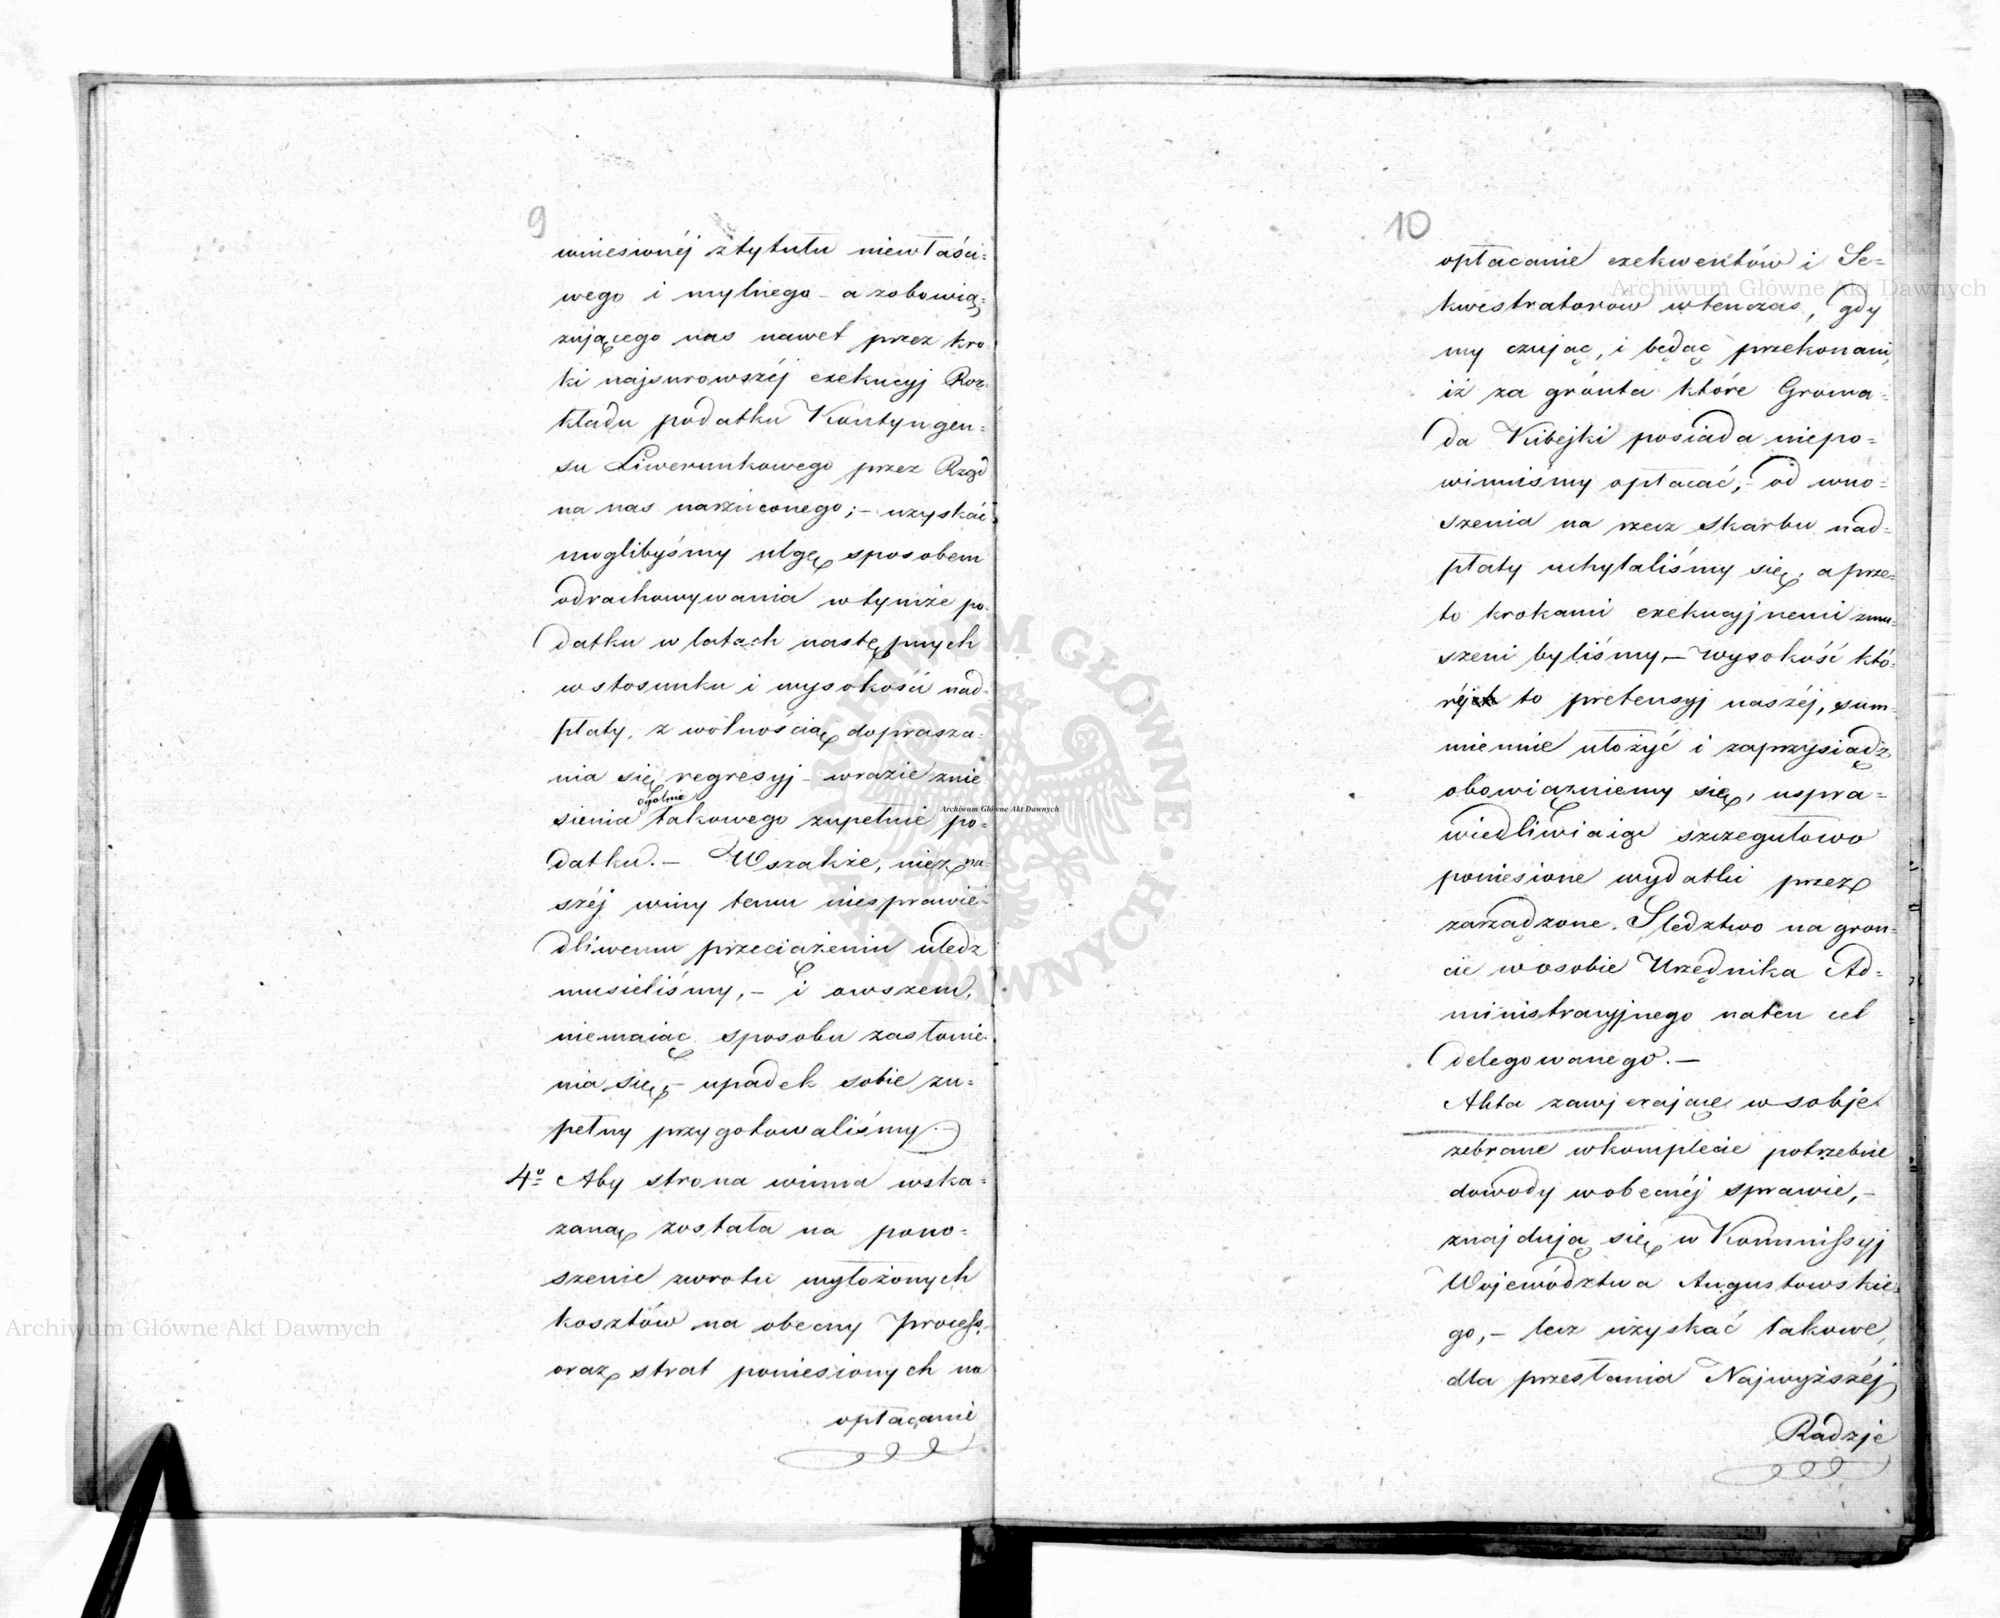 9
wniesionéj z tytułu niewłaści=
wego i mylnego – a zobowią=
zującego nas nawet przez kro
ki najsurowszéj exekucyj Roz=
kładu podatku Kontyngen=
su Liwerunkowego przez Rząd
na nas narzuconego; – uzyskać
moglibyśmy ulgę sposobem
odrachowywania w tymże po=
datku w latach następnych
w stosunku i wysokości nad=
płaty, z wolnością doprasza=
nia się regresyj – wrazie znie
ogólnie
sienia takowego zupełnie po=
datku. – Wszakże, niez na
széj winy temu niesprawie=
dliwemu przeciążeniu uledz
musieliśmy, – i owszem,
niemaiąc sposobu zasłonie=
nia się, – upadek sobie zu=
pełny przygotowaliśmy. –
4o Aby strona winna wska=
zaną została na pono=
szenie zwrotu wyłożonych
kosztów na obecny process,
oraz strat poniesionych na
opłacanie
10
opłacanie exekwentów i Se=
kwestratorow wtenczas, gdy
my czując, i będąc przekonani,
iż za grónta które Groma=
da Kibejki posiada niepo=
winniśmy opłacać, – od wno=
szenia na rzecz skarbu nad=
płaty uchylaliśmy się, a prze=
to krokami exekucyjnemi zmu=
szeni byliśmy – wysokość któ=
réj to pretensyj naszéj, sum=
miennie ułożyć i zaprzysiądz
obowiązniemy się, uspra=
wiedliwiaiąc szczegułowo
poniesione wydatki przez
zarządzone Sledztwo na gron=
cie w osobie Urzędnika Ad=
ministracyjnego na ten cel
delegowanego. –
Akta zawjerające w sobje
zebrane w komplecie potrzebne
dowody w obecnéj sprawie, –
znajdują się w Kommissyj
Województwa Augustowskie=
go, – lecz uzyskać takowe,
dla przesłania Najwyższéj
Radzje
Archiwum Główne Akt Dawnych
Archiwum Główne Akt Dawnych
Archiwum Główne Akt Dawnych
ARCHIWUM GŁÓWNE AKT DAWNYCH